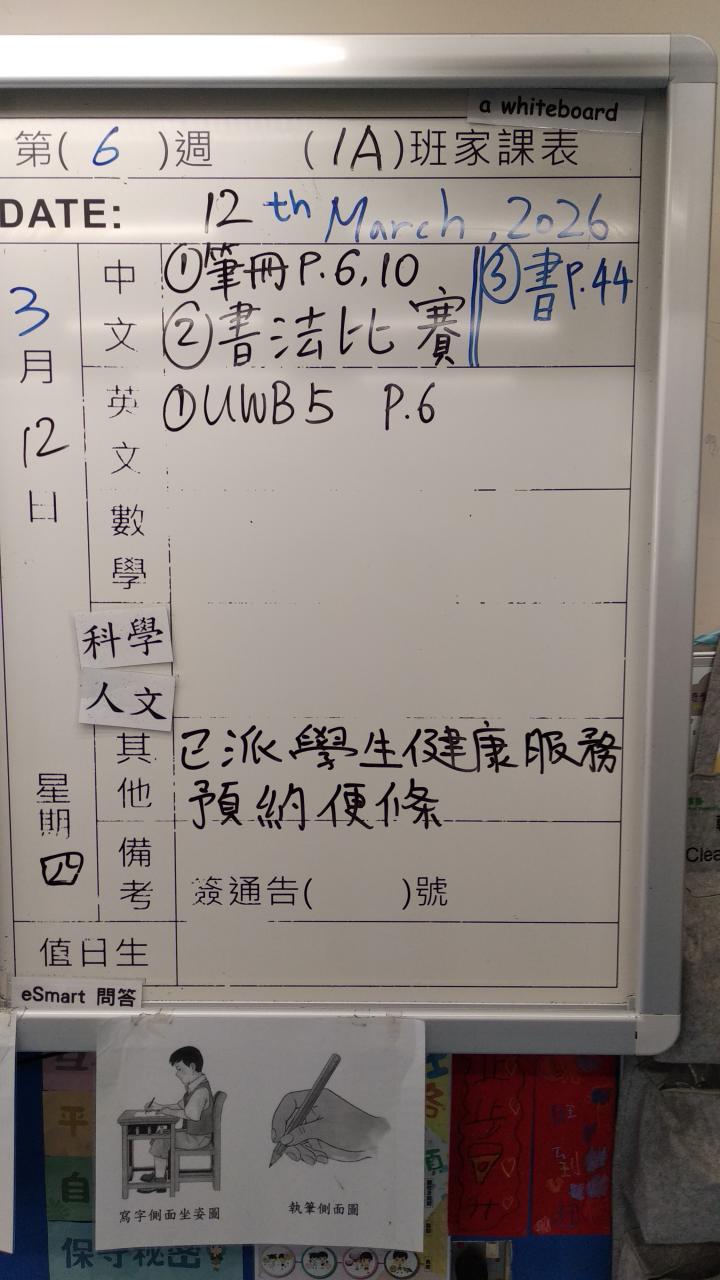 a whiteboard
第( 6 )週 (1A)班家課表
DATE: 12th March, 2026
3月12日
星期四
中文
①筆冊P.6,10
②書法比賽
③書P.44
英文
①UWB5 P.6
數學
科學
人文
其他
已派學生健康服務
預約便條
備考
簽通告( )號
值日生
eSmart 問答
寫字側面坐姿圖
執筆側面圖
平
自
保守秘密
Clea